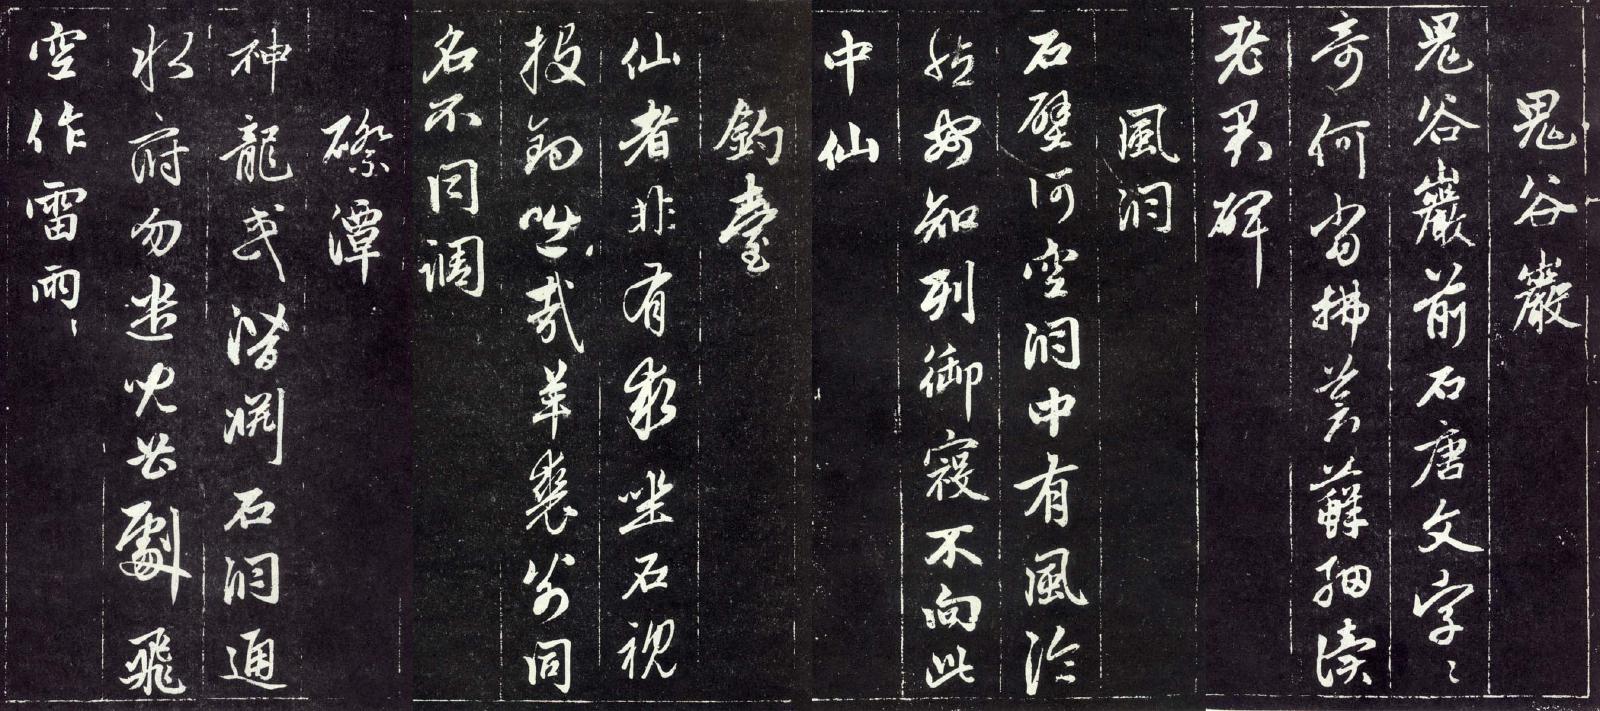 鬼谷巖
鬼谷巖前石唐文字〻
奇何當拂蒼蘚細讀
老君碑
風洞
石壁何空洞中有風泠
然安知列御寇不向此
中仙
釣臺
仙者非有求坐石視
投鉤咄哉羊裘翁同
名不同調
磜潭
神龍或潛淵石洞通
水府勿遣兒曹劇飛
空作雷雨